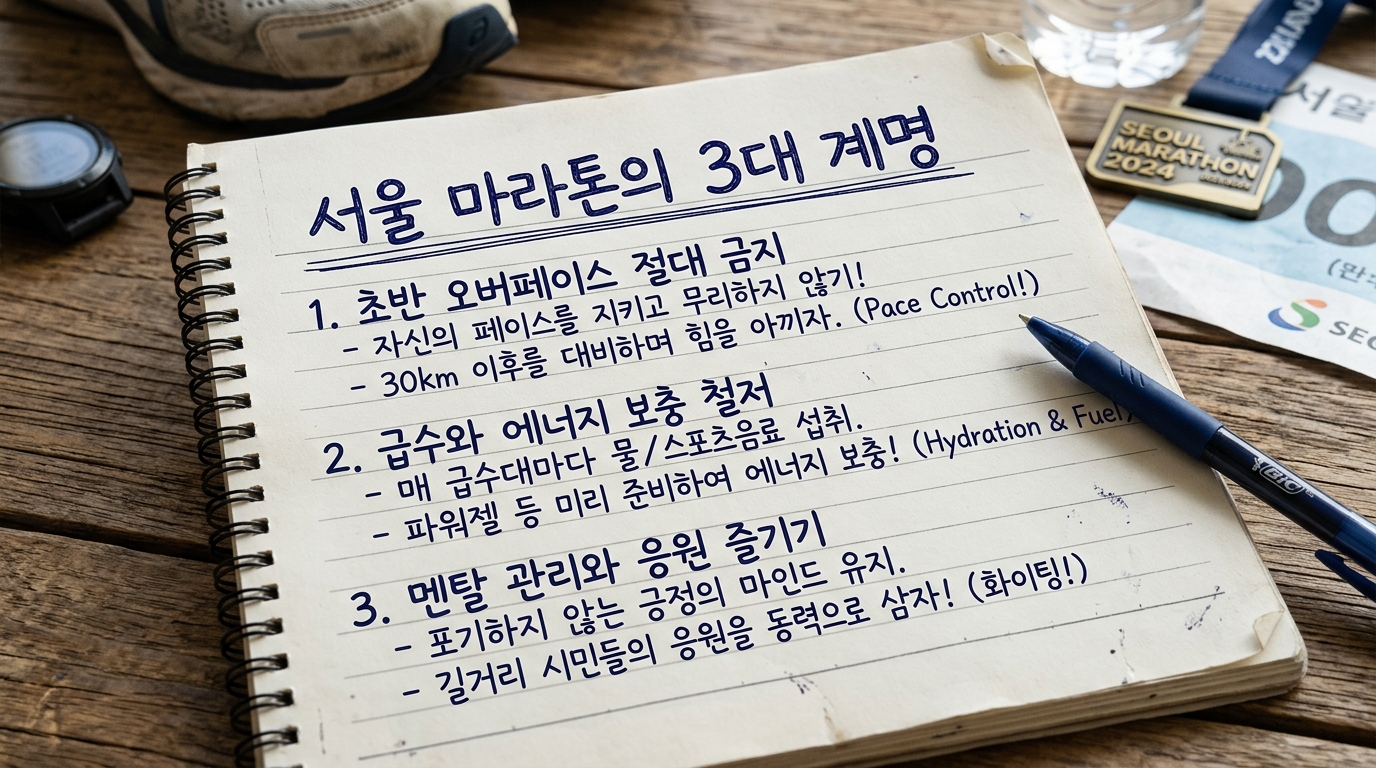 서울 마라톤의 3대 계명
1. 초반 오버페이스 절대 금지
- 자신의 페이스를 지키고 무리하지 않기!
- 30km 이후를 대비하며 힘을 아끼자. (Pace Control!)
2. 급수와 에너지 보충 철저
- 매 급수대마다 물/스포츠음료 섭취.
- 파워젤 등 미리 준비하여 에너지 보충! (Hydration & Fuel)
3. 멘탈 관리와 응원 즐기기
- 포기하지 않는 긍정의 마인드 유지.
- 길거리 시민들의 응원을 동력으로 삼자! (화이팅!)
SEOUL
MARATHON
2024
BIC